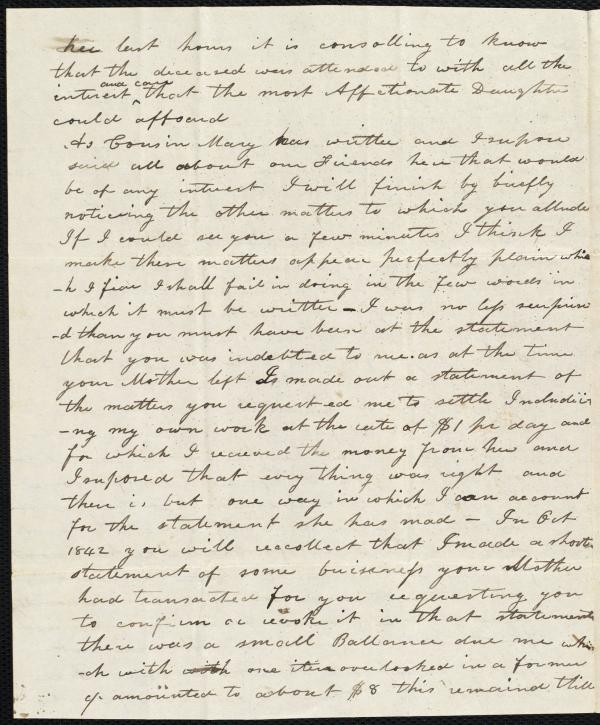 her last hours it is consolling to know
that the deceased was attended to with all the
interest and care that the most Affectionate Daughter
could affoard
As Cousin Mary has writter and I supose
said all about our Friends here that would
be of any interest I will finish by briefly
noticeing the other matters to which you allude
If I could see you a few minutes I think I
make there matters appear perfectly plain whic
-h I fear I shall fail in doing in the few words in
which it must be writter - I was no less surprise
-d than you must have been at the statement
that you was indebted to me. as at the time
your Mother left Is made out a statement of
the matters you request-ed me to settle Includii
-ng my own work at the rate of $1 pr day and
for which I received the money from her and
I suposed that every thing was right and
there is but one way in which I can account
for the statement she has mad - In Oct
1842 you will recollect that I made a short
statement of some buisness your Mother
had transacted for you requesting you
to confirm or revoke it in that statement
there was a small Ballance due me whi
-ch with with one item overlooked in a former
amounted to about $8 this remaind till